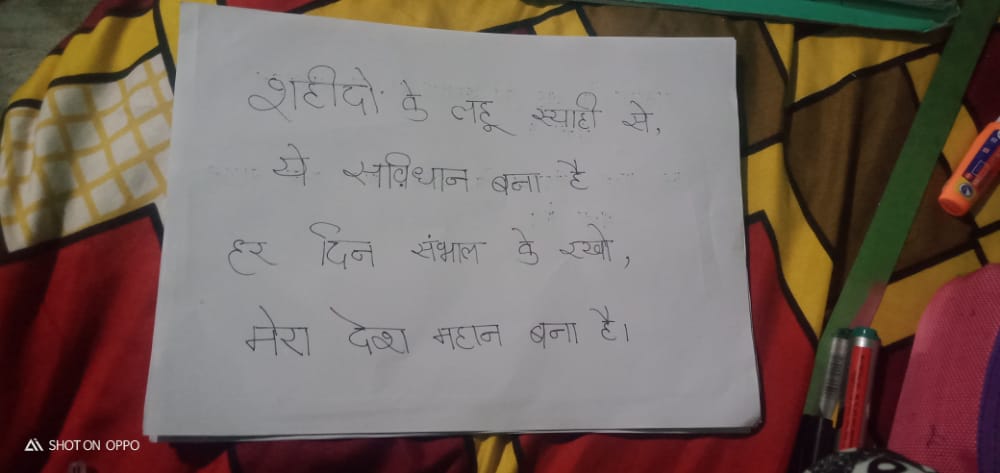 शहीदों के लहू स्याही से,
ये सविधान बना है
हर दिन संभाल के रखो,
मेरा देश महान बना है।
SHOT ON OPPO